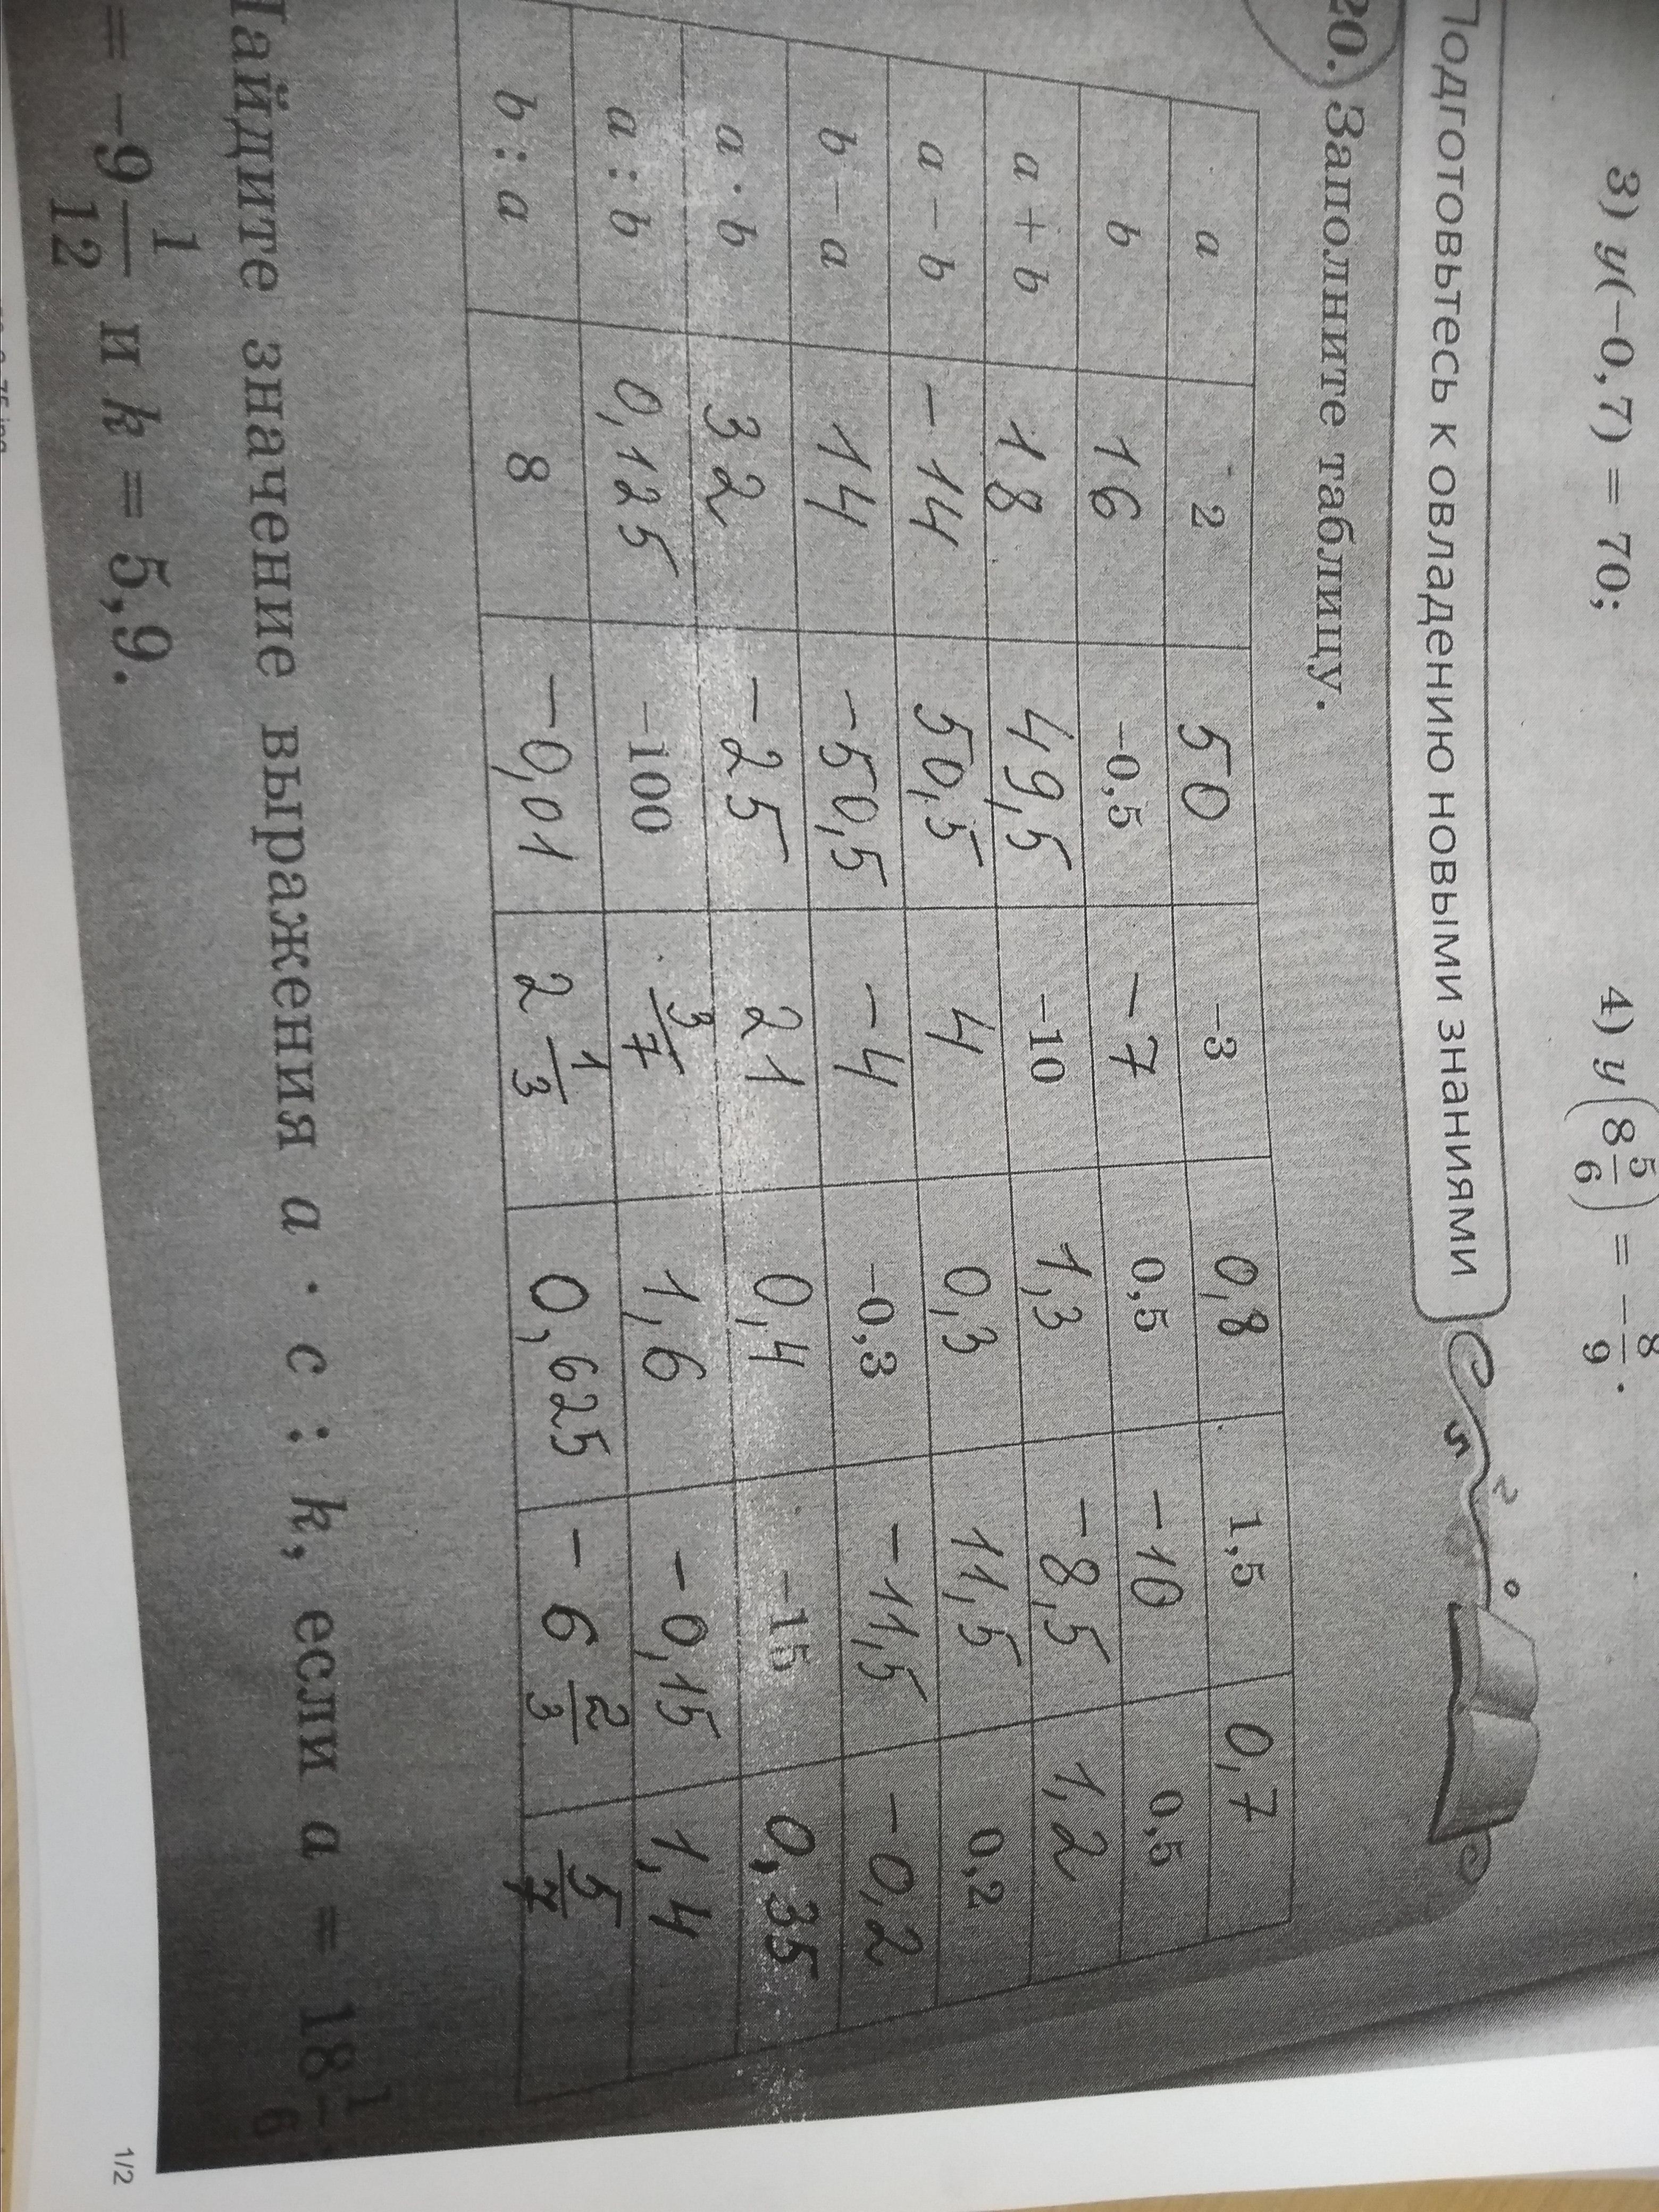 3) y(−0,7) = 70; 4) y(8 5/6) = −8/9.
Подготовьтесь к овладению новыми знаниями
20. Заполните таблицу.
a 2 50 −3 0,8 1,5 0,7
b 16 −0,5 −7 0,5 −10 0,5
a + b 18 49,5 −10 1,3 −8,5 1,2
a − b −14 50,5 4 0,3 11,5 0,2
b − a 14 −50,5 −4 −0,3 −11,5 −0,2
a · b 32 −25 21 0,4 −15 0,35
a : b 0,125 −100 3/7 1,6 −0,15 1,4
b : a 8 −0,01 2 1/3 0,625 −6 2/3 5/7
Найдите значение выражения a · c : k, если a = 18 1/6,
= −9 1/12 и k = 5,9.
1/2